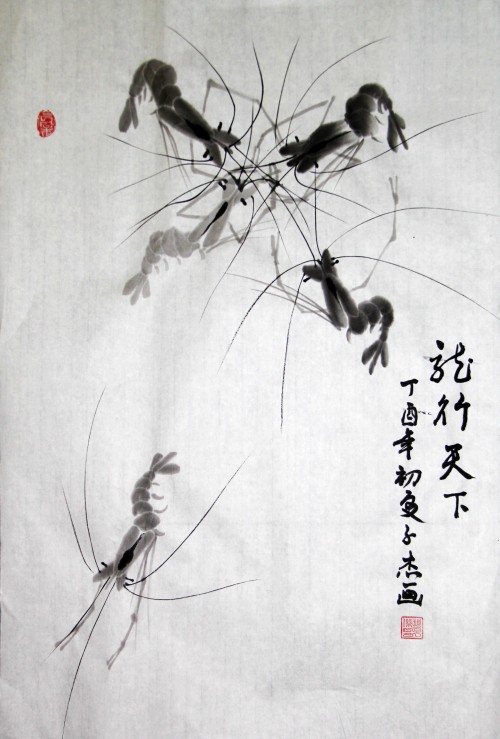 龙行天下
丁酉年初夏子杰画